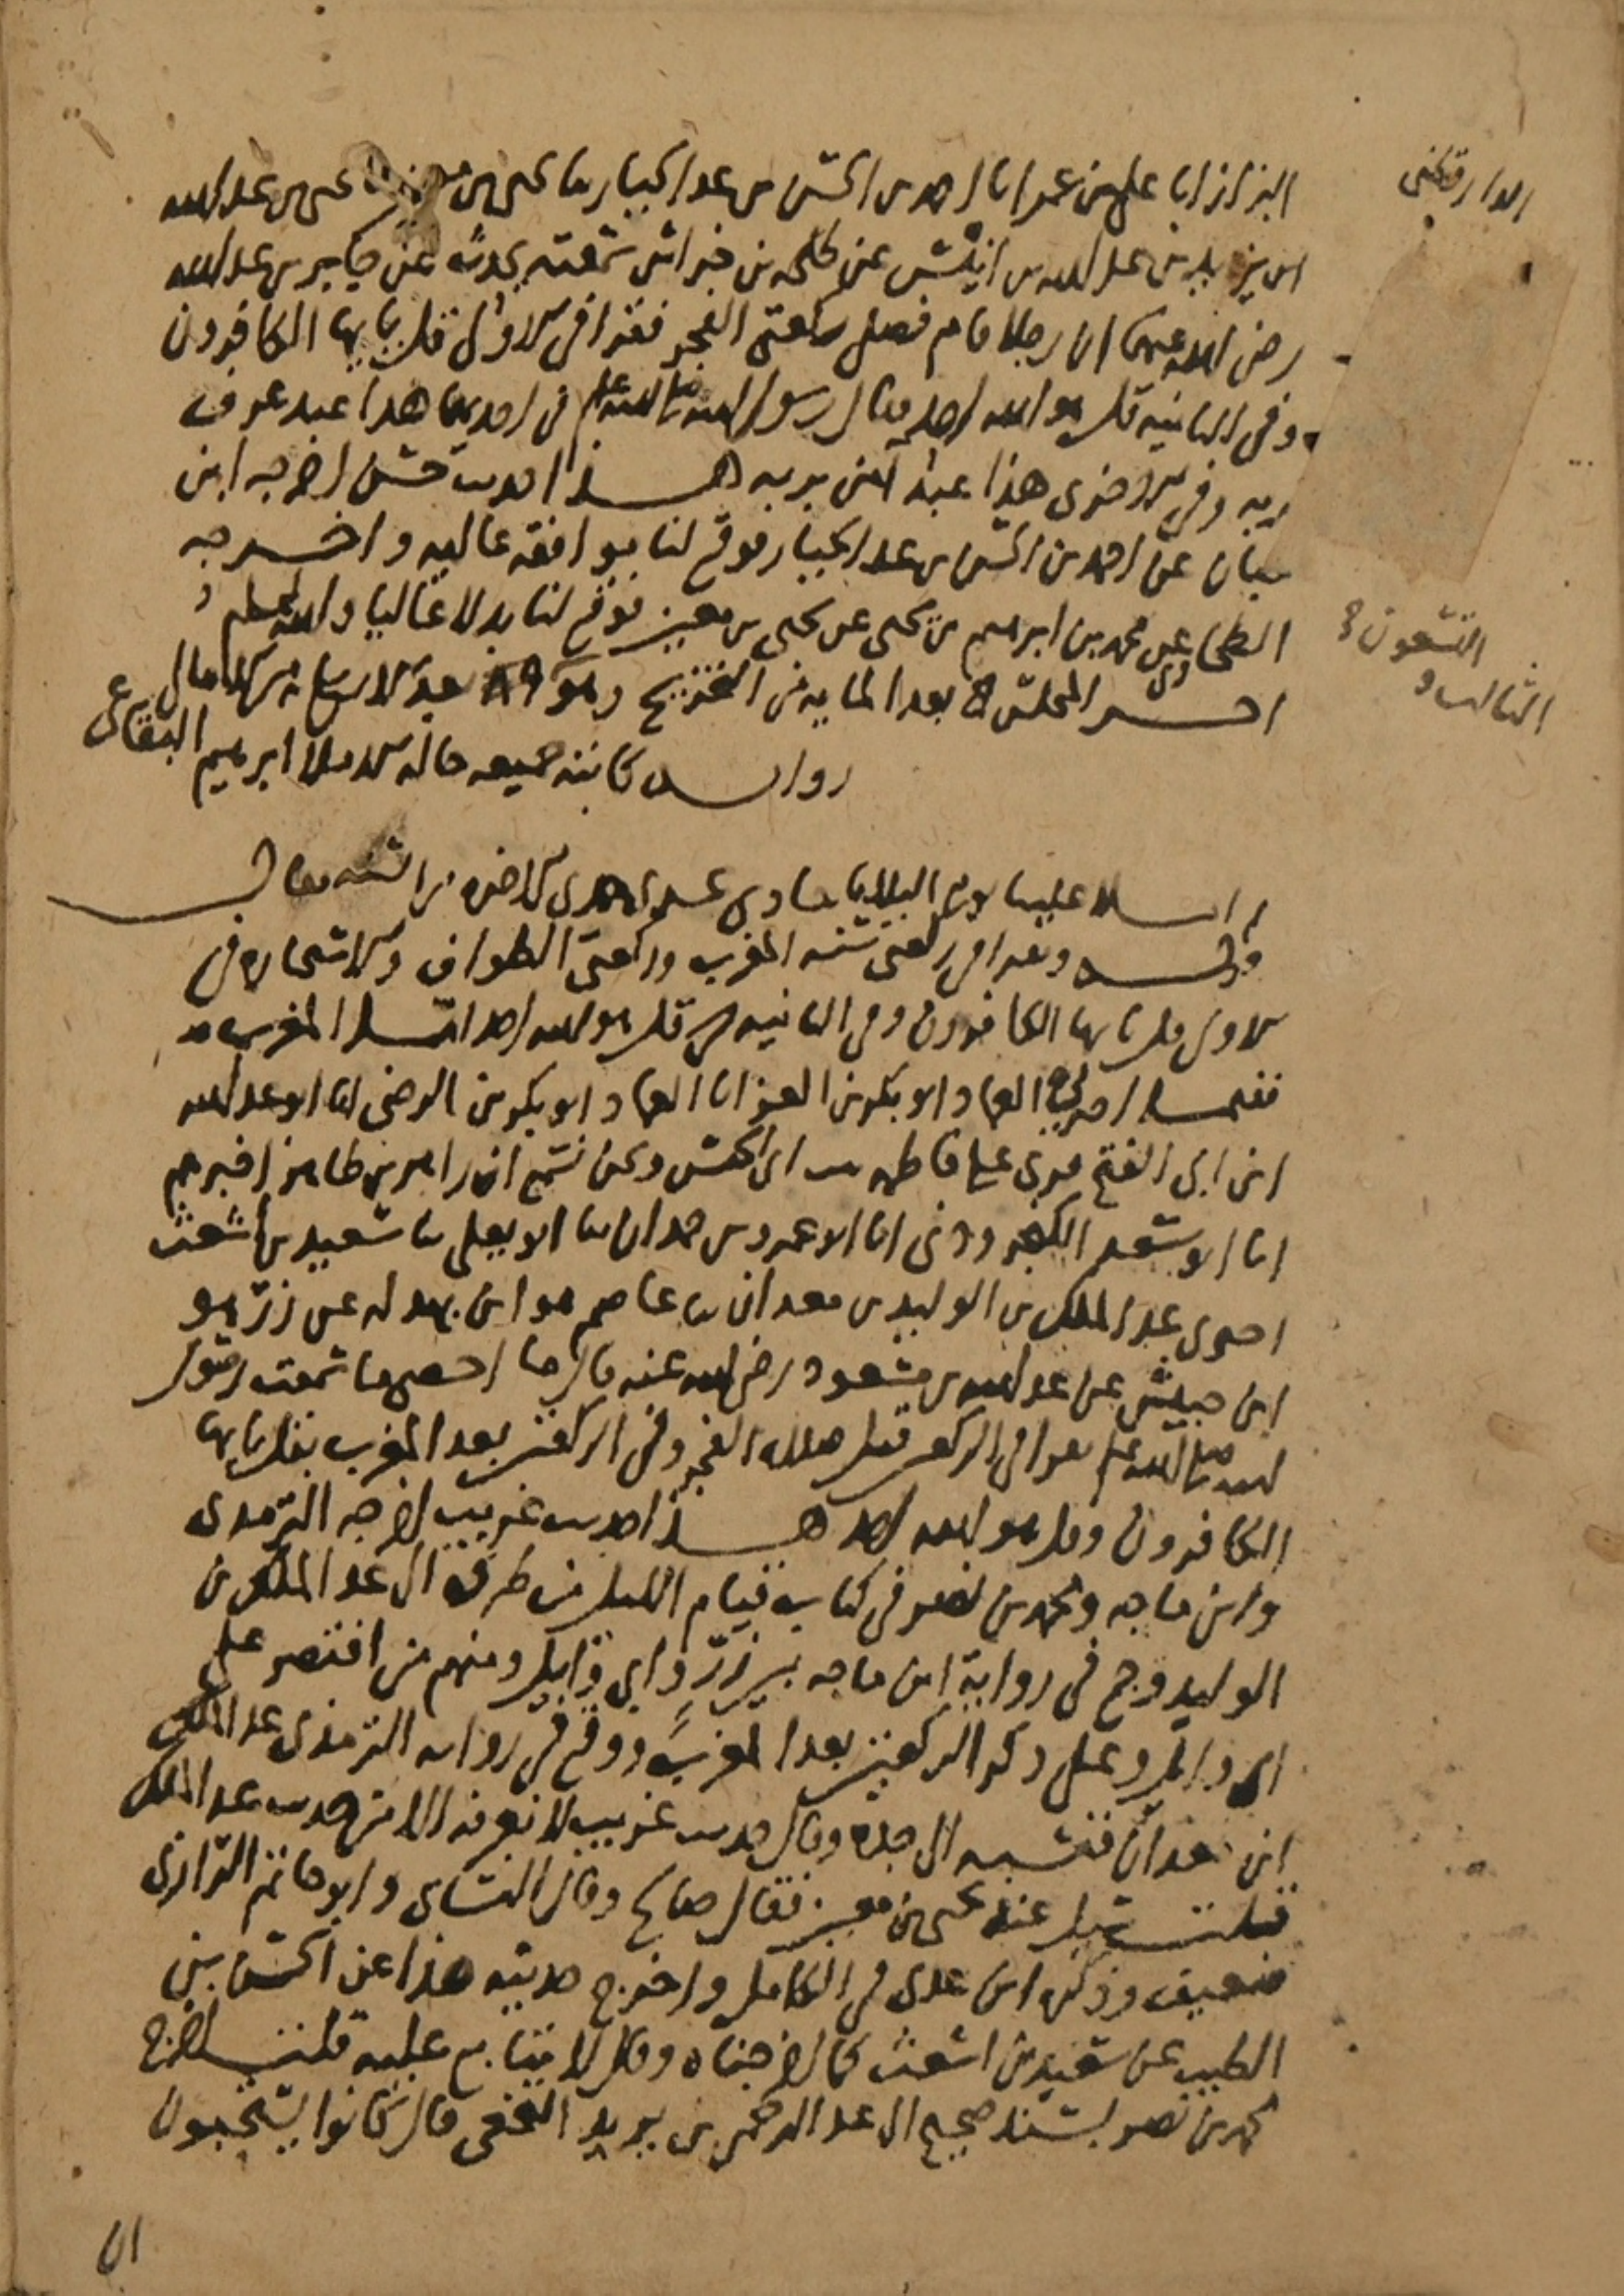 البزاز انا علي بن عمر انا احمد بن الحسن بن عبد الجبار ثنا يحيى بن معين ثنا يحيى بن عبد الله
ابن يزيد بن عبد الله بن انيس عن طلحة بن خراش سمعته يحدث عن جابر بن عبد الله
رضي الله عنهما ان رجلا قام فصلى ركعتي الفجر فقرا في الاولى قل يا ايها الكافرون
وفي الثانية قل هو الله احد فقال رسول الله صلى الله عليه وسلم في احديهما هذا عبد عرف
ربه وفي الاخرى هذا عبد آمن بربه هذا حديث حسن اخرجه ابن
حبان عن احمد بن الحسن بن عبد الجبار فوقع لنا موافقة عالية واخرجه
الطحاوي عن محمد بن ابرهيم عن يحيى عن يحيى بن معين فوقع لنا بدلا عاليا والله اعلم
اخر المجلس بعد الماية من التخريج وهو ٨٩ بعد الاربعماية من الامالي
رواية كاتبه جميعه خلا ابرهيم البقاعي
ثم املا علينا يوم الثلاثا جمادى الاخرة من السنة فقال
قوله ويقرا في ركعتي سنة المغرب وركعتي الطواف والاستخارة في
الاولى قل يا ايها الكافرون وفي الثانية قل هو الله احد اما المغرب
ففيما العماد ابو بكر بن العز انا العماد ابو بكر بن الرضي انا ابو عبد الله
ابن ابي الفتح قرئ على فاطمة بنت ابي الحسن ونحن نسمع ان زاهر بن طاهر اخبرهم
انا ابو سعد الكنجروذي انا ابو عمرو بن حمدان ثنا ابو يعلى ثنا سعيد بن اشعث
اخبرني عبد الملك بن الوليد بن معدان ثنا عاصم هو ابن بهدلة عن زر هو
ابن حبيش عن عبد الله بن مسعود رضي الله عنه قال ما احصي ما سمعت رسول
الله صلى الله عليه وسلم يقرا في الركعتين قبل صلاة الفجر وفي الركعتين بعد المغرب بقل يا ايها
الكافرون وقل هو الله احد هذا حديث غريب اخرجه الترمذي
وابن ماجه ومحمد بن نصر في كتاب قيام الليل من طرق الى عبد الملك بن
الوليد وجمع في رواية ابن ماجه بين زر وابي وايل ومنهم من اقتصر على
ابي وايل وعلى ذكر الركعتين بعد المغرب ووقع في رواية الترمذي عبد الملك
ابن معدان فنسبه الى جده وقال حديث غريب لا نعرفه الا من حديث عبد الملك
قلت سئل عنه يحيى بن معين فقال صالح وقال النساي وابو حاتم الرازي
ضعيف وذكره ابن عدي في الكامل واخرج حديثه هذا عن الحسن بن
الطيب عن سعيد بن اشعث كما اخرجناه وقال لا يتابع عليه قلت اخرج
محمد بن نصر بسند صحيح الى عبد الرحمن بن يزيد النخعي قال كانوا يستحبون
ان
الدارقطني
التسعون
الثالث و